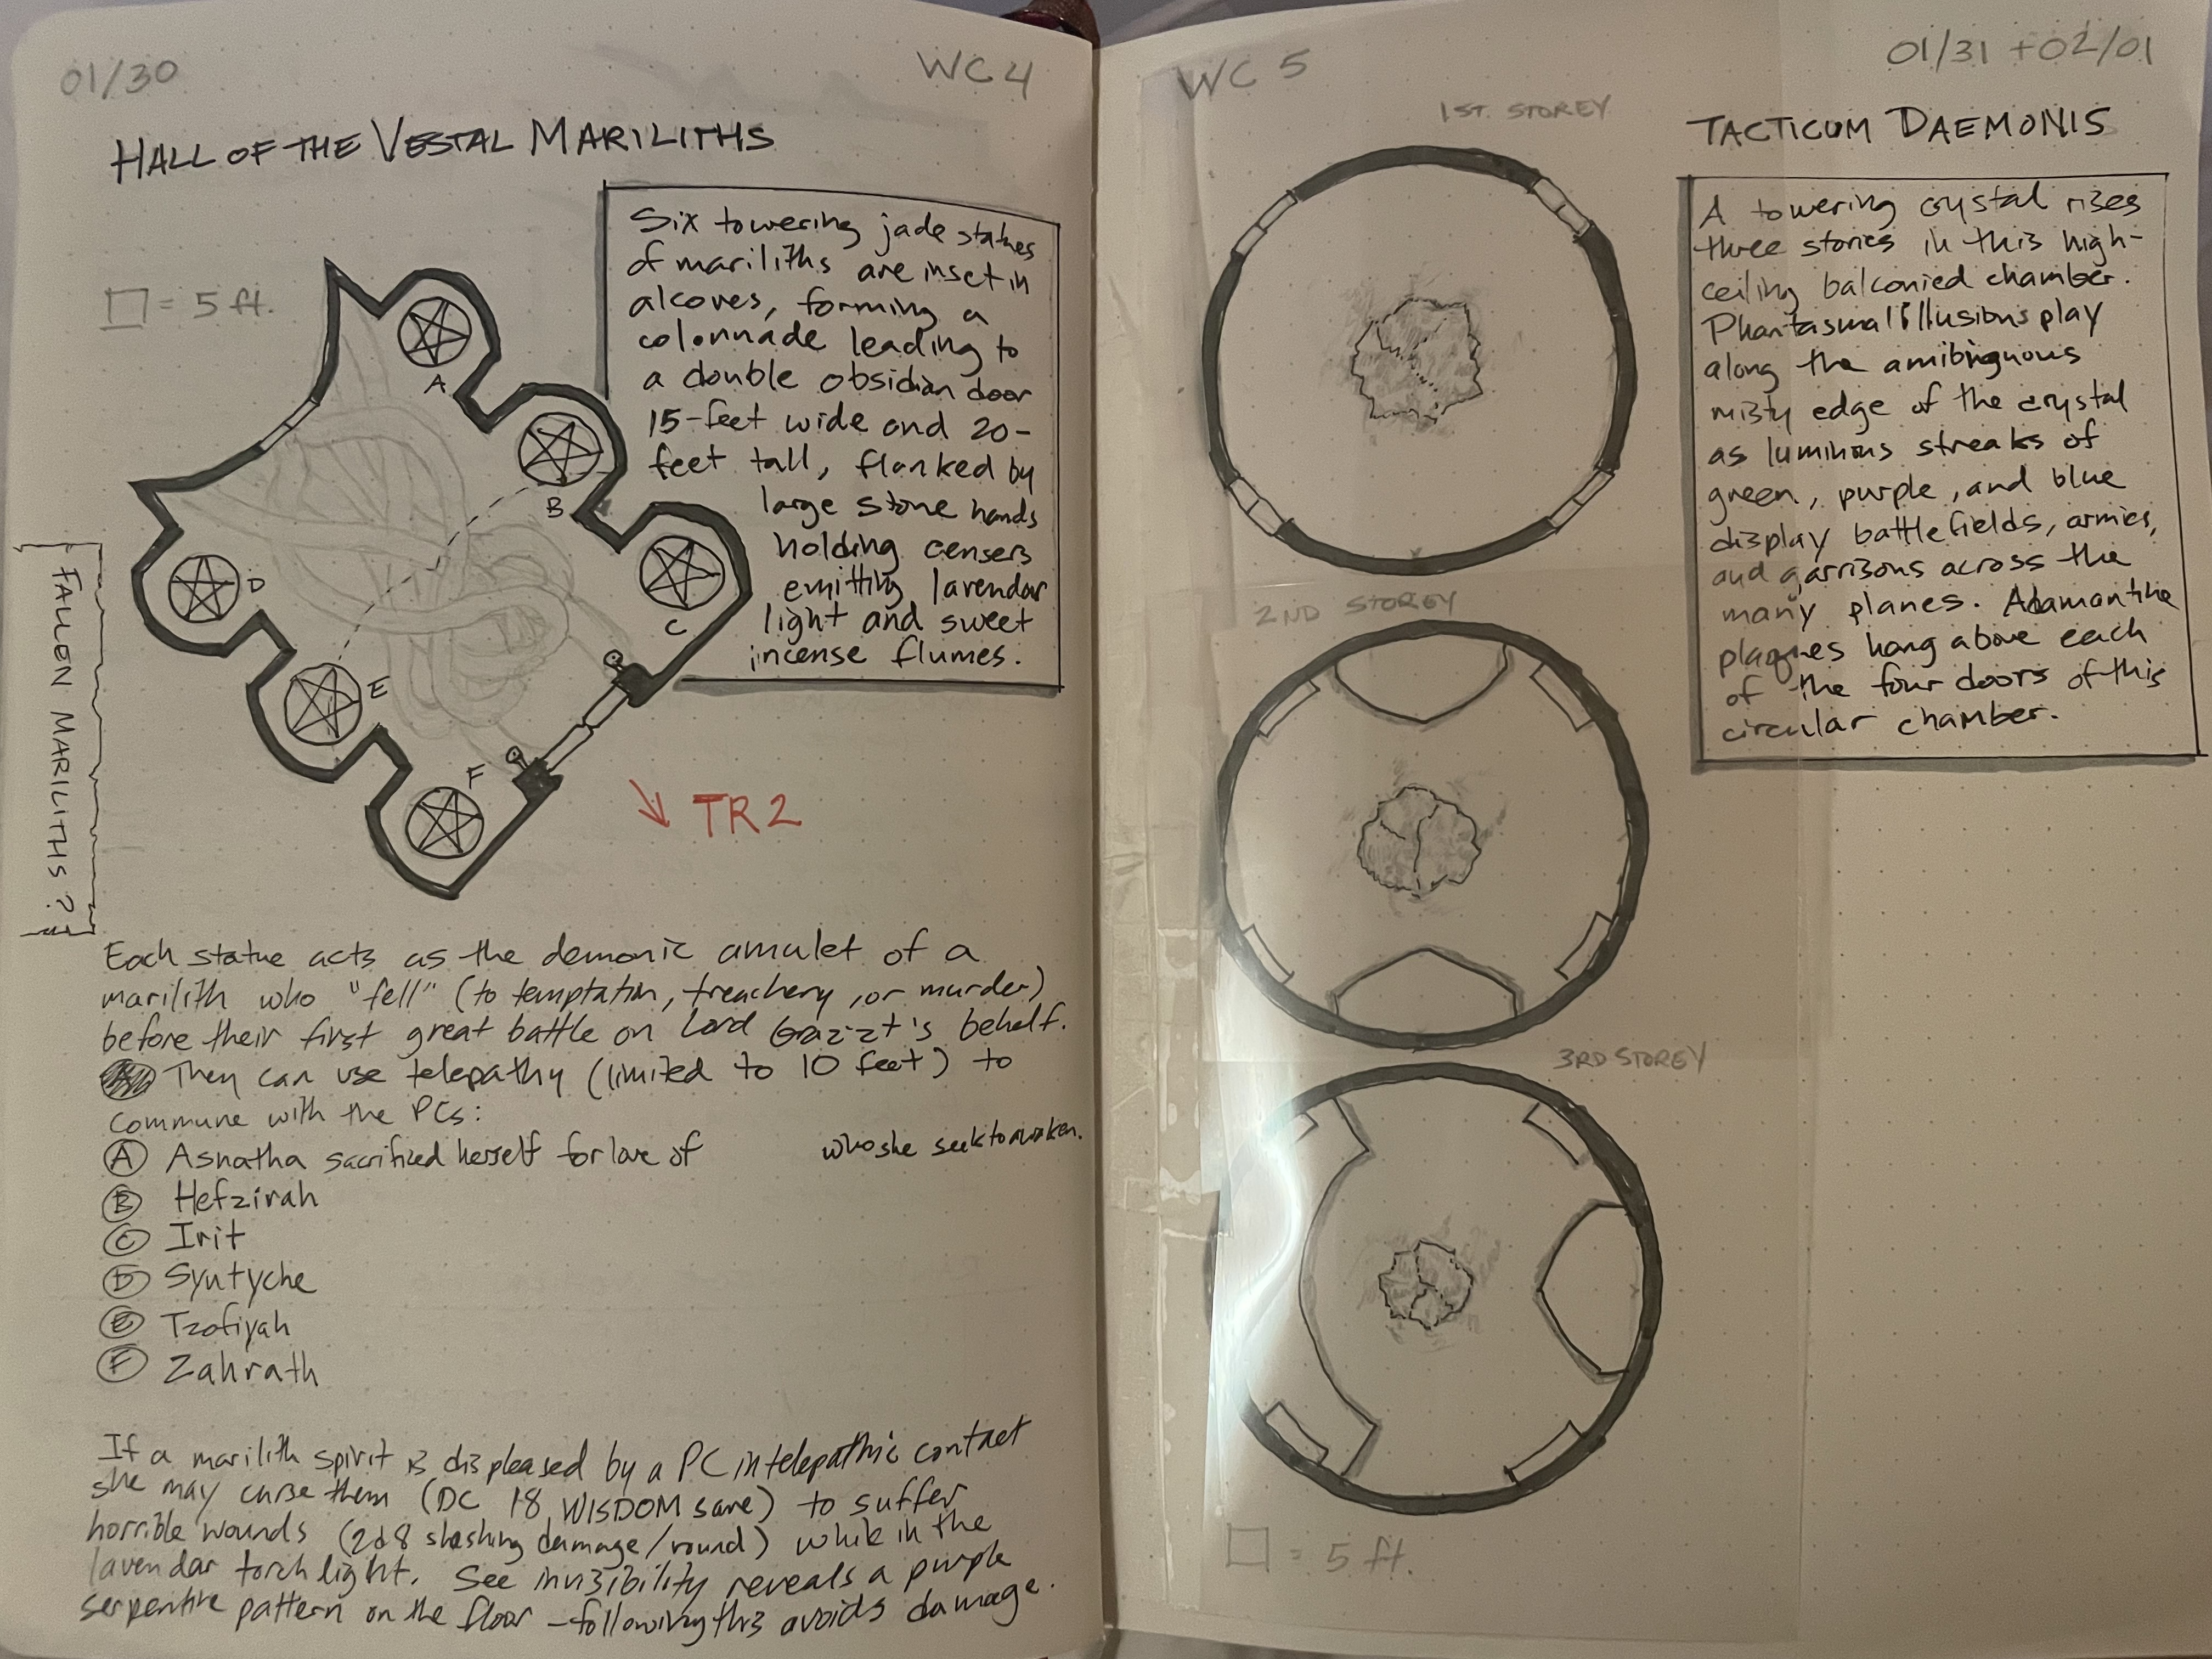 01/30
WC 4
HALL OF THE VESTAL MARILITHS
= 5 ft.
Six towering jade statues
of mariliths are inset in
alcoves, forming a
colonnade leading to
a double obsidian door
15-feet wide and 20-
feet tall, flanked by
large stone hands
holding censers
emitting lavendar
light and sweet
incense flumes.
A
B
C
D
E
F
TR2
FALLEN MARILITHS?
Each statue acts as the demonic amulet of a
marilith who "fell" (to temptation, treachery, or murder)
before their first great battle on Lord Graz'zt's behalf.
They can use telepathy (limited to 10 feet) to
commune with the PCs:
A Asnatha sacrificed herself for love of who she seek to awaken.
B Hefzirah
C Irit
D Syntyche
E Tzofiyah
F Zahrath
If a marilith spirit is displeased by a PC in telepathic contact
she may curse them (DC 18 WISDOM save) to suffer
horrible wounds (2d8 slashing damage/round) while in the
lavendar torch light. See invisibility reveals a purple
serpentine pattern on the floor - following this avoids damage.
WC 5
01/31 + 02/01
TACTICUM DAEMONIS
1ST. STOREY
A towering crystal rises
three stories in this high-
ceiling balconied chamber.
Phantasmal illusions play
along the amibiguous
misty edge of the crystal
as luminous streaks of
green, purple, and blue
display battlefields, armies,
and garrisons across the
many planes. Adamantine
plaques hang above each
of the four doors of this
circular chamber.
2ND STOREY
3RD STOREY
= 5 ft.